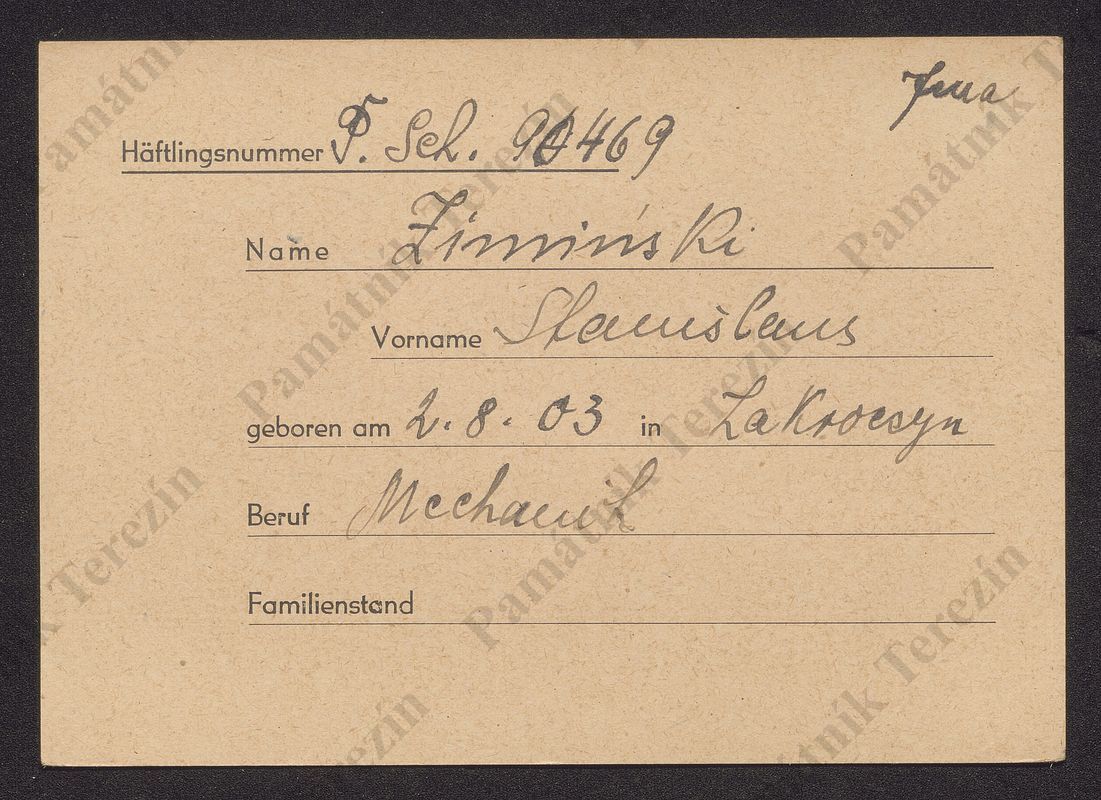 Jena
Häftlingsnummer P. Sch. 90469
Name Zimiński
Vorname Stanislaus
geboren am 2. 8. 03 in Zakroczyn
Beruf Mechanik
Familienstand
Památník Terezín